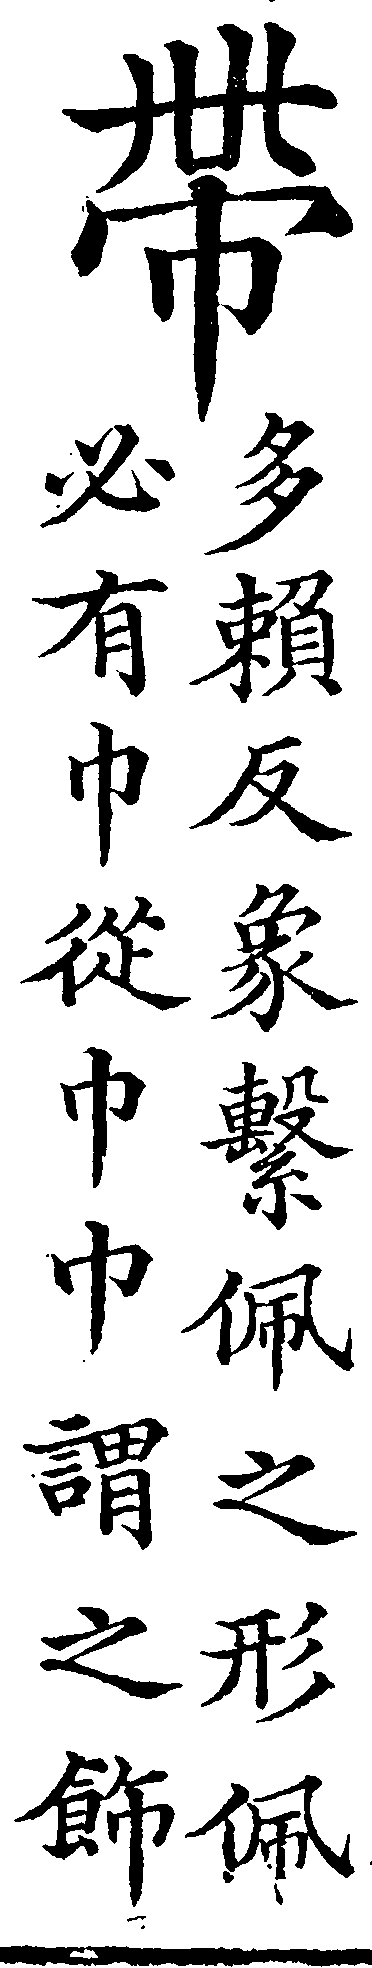 帶
多賴反象繫佩之形佩
必有巾從巾巾謂之飾